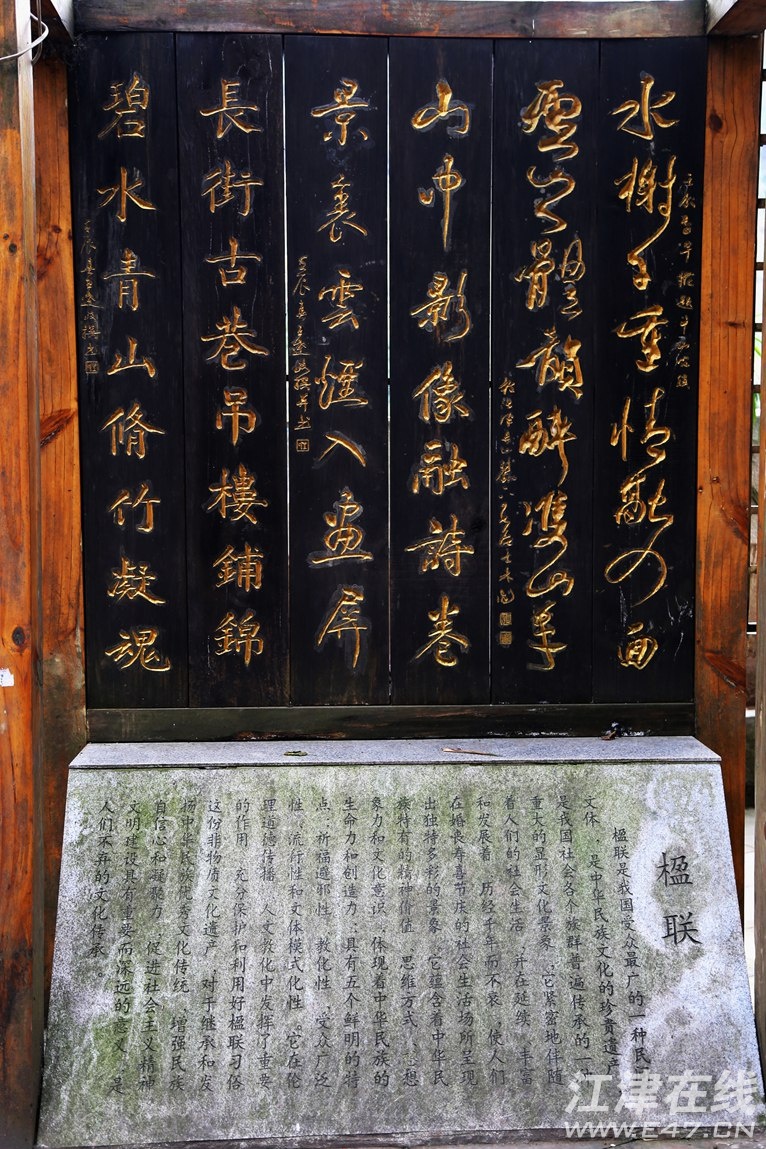 水榭千重情融四面
體韻醉雙山
山中影像融詩卷
景裏雲煙入畫屏
長街古巷吊樓鋪錦
碧水青山脩竹凝魂
楹联
楹联是我国受众最广的一种民
文体，是中华民族文化的珍贵遗产
是我国社会各个族群普遍传承的一
重大的显形文化景象，它紧密地伴随
着人们的社会生活，并在延续、丰富
和发展着，历经千年而不衰，使人们
在婚丧寿喜节庆的社会生活场所呈现
出独特多彩的景象，它蕴含着中华民
族特有的精神价值、思维方式、想
象力和文化意识，体现着中华民族的
生命力和创造力；具有五个鲜明的特
点：祈福避邪性、教化性、受众广泛
性、流行性和文体模式化性。它在伦
理道德传播、人文教化中发挥了重要
的作用。充分保护和利用好楹联习俗
这份非物质文化遗产，对于继承和发
扬中华民族优秀文化传统、增强民族
自信心和凝聚力、促进社会主义精神
文明建设具有重要而深远的意义，是
人们不弃的文化传承
江津在线
WWW.E47.CN